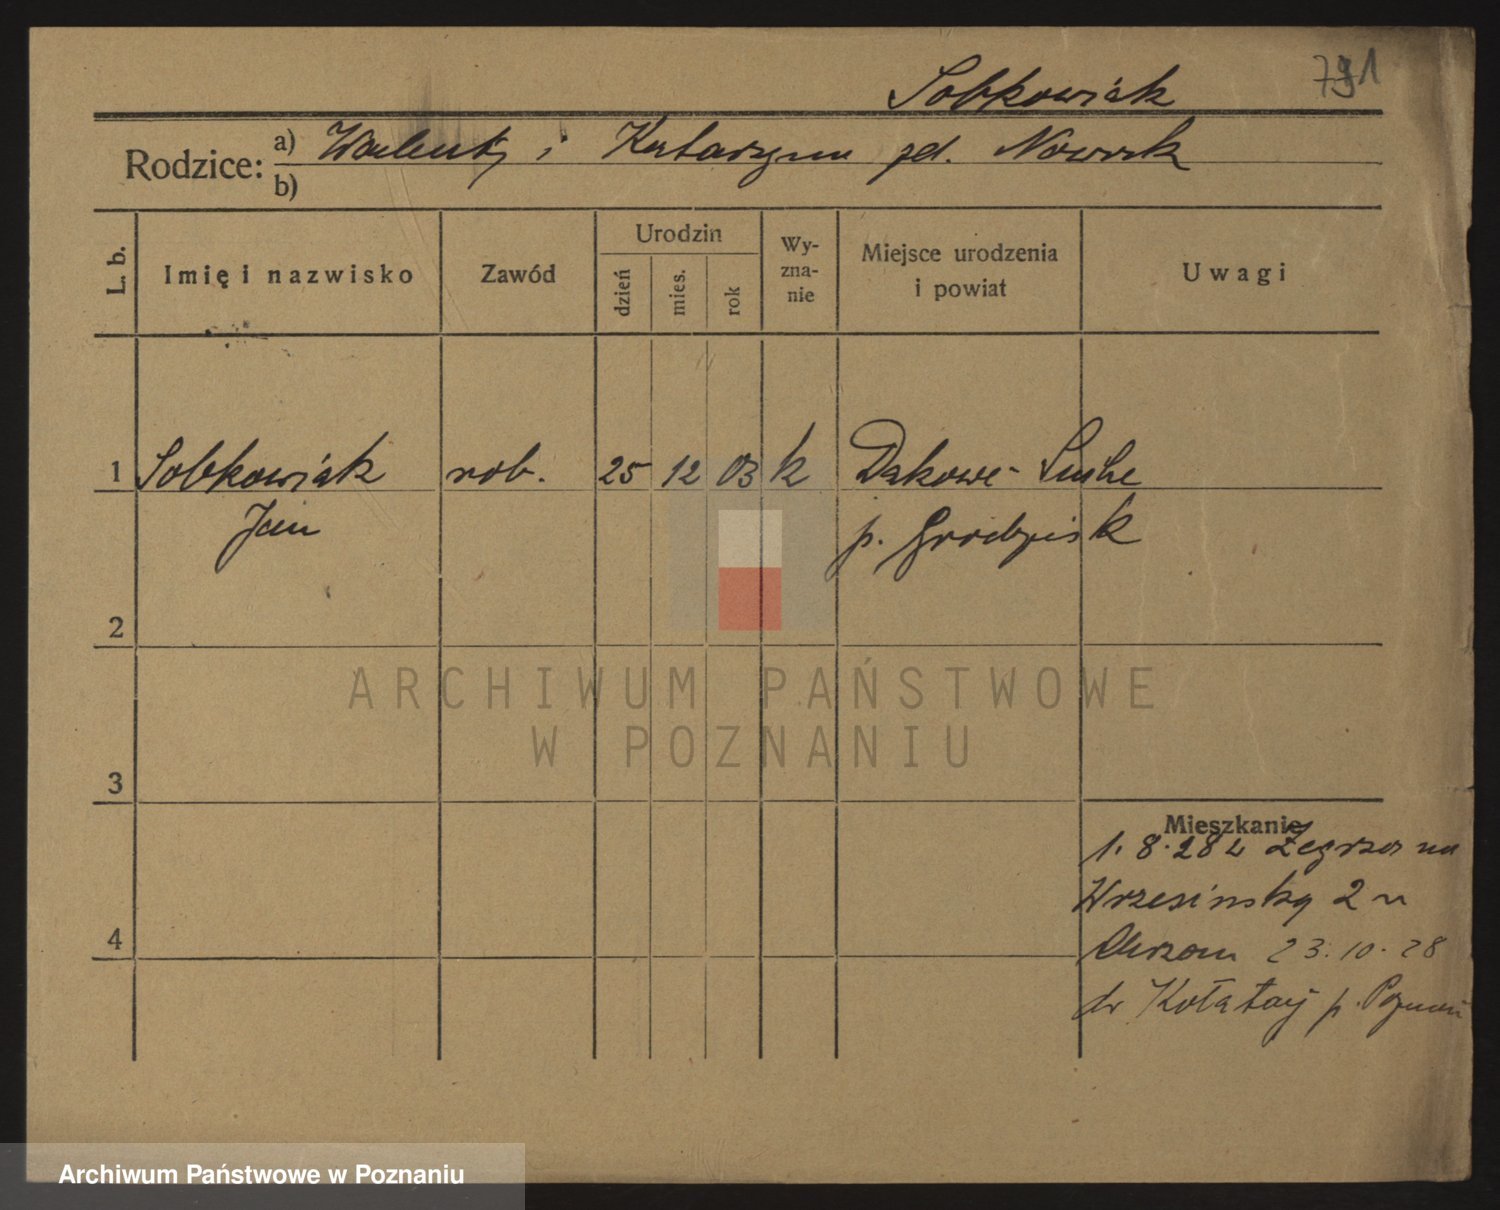 791
Sobkowiak
Rodzice: a) Walenty i Katarzyna zd. Nowak
b)
L. b. Imię i nazwisko Zawód Urodzin dzień mies. rok Wyznanie Miejsce urodzenia i powiat Uwagi
1 Sobkowiak rob. 25 12 03 k Dakowe- Suche
Jan p. Grodzisk
2
3
Mieszkanie
1.8.28 z Zegrza na
Wrzesińską 2 u
23.10.28
4
do Kołataj p. Poznań
ARCHIWUM PAŃSTWOWE
W POZNANIU
Archiwum Państwowe w Poznaniu